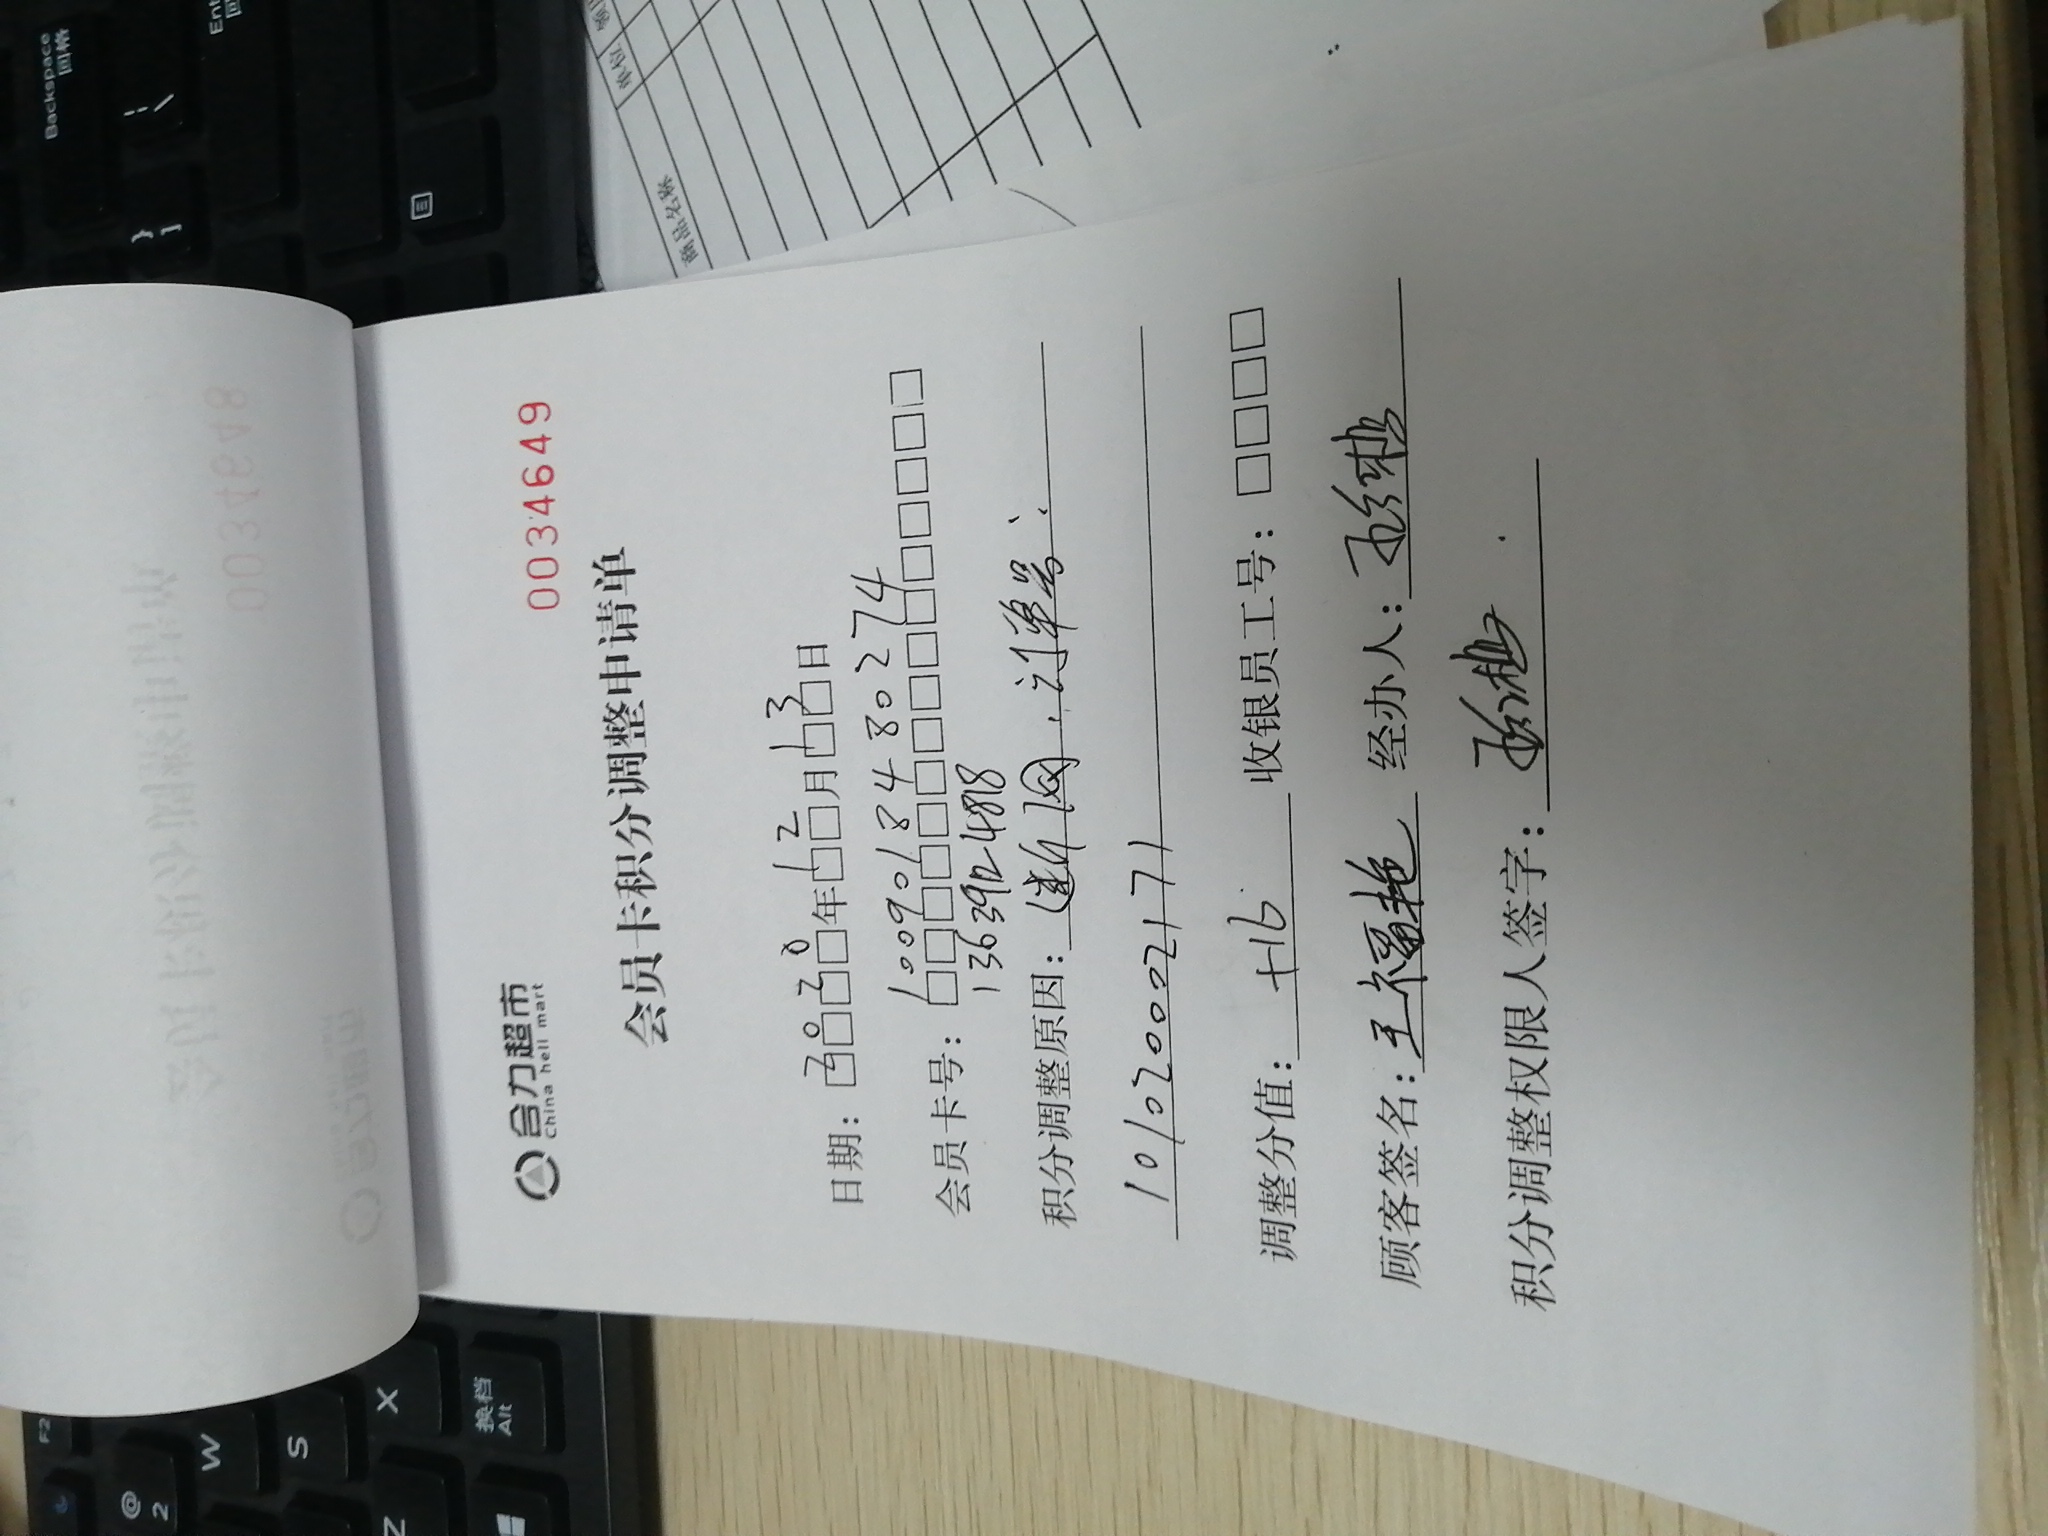 合力超市
China hell mart
0034649
会员卡积分调整申请单
日期：2020年12月13日
会员卡号：1009018480274
13639124818
积分调整原因：断网，订单号：
10102000217 1
调整分值：+16 收银员工号：□□□□
顾客签名：王福艳 经办人：
积分调整权限人签字：
0034648
商品名称
单位
Backspace
回格
Ent
F2
@
2
W
S
X
Z
换档
Alt